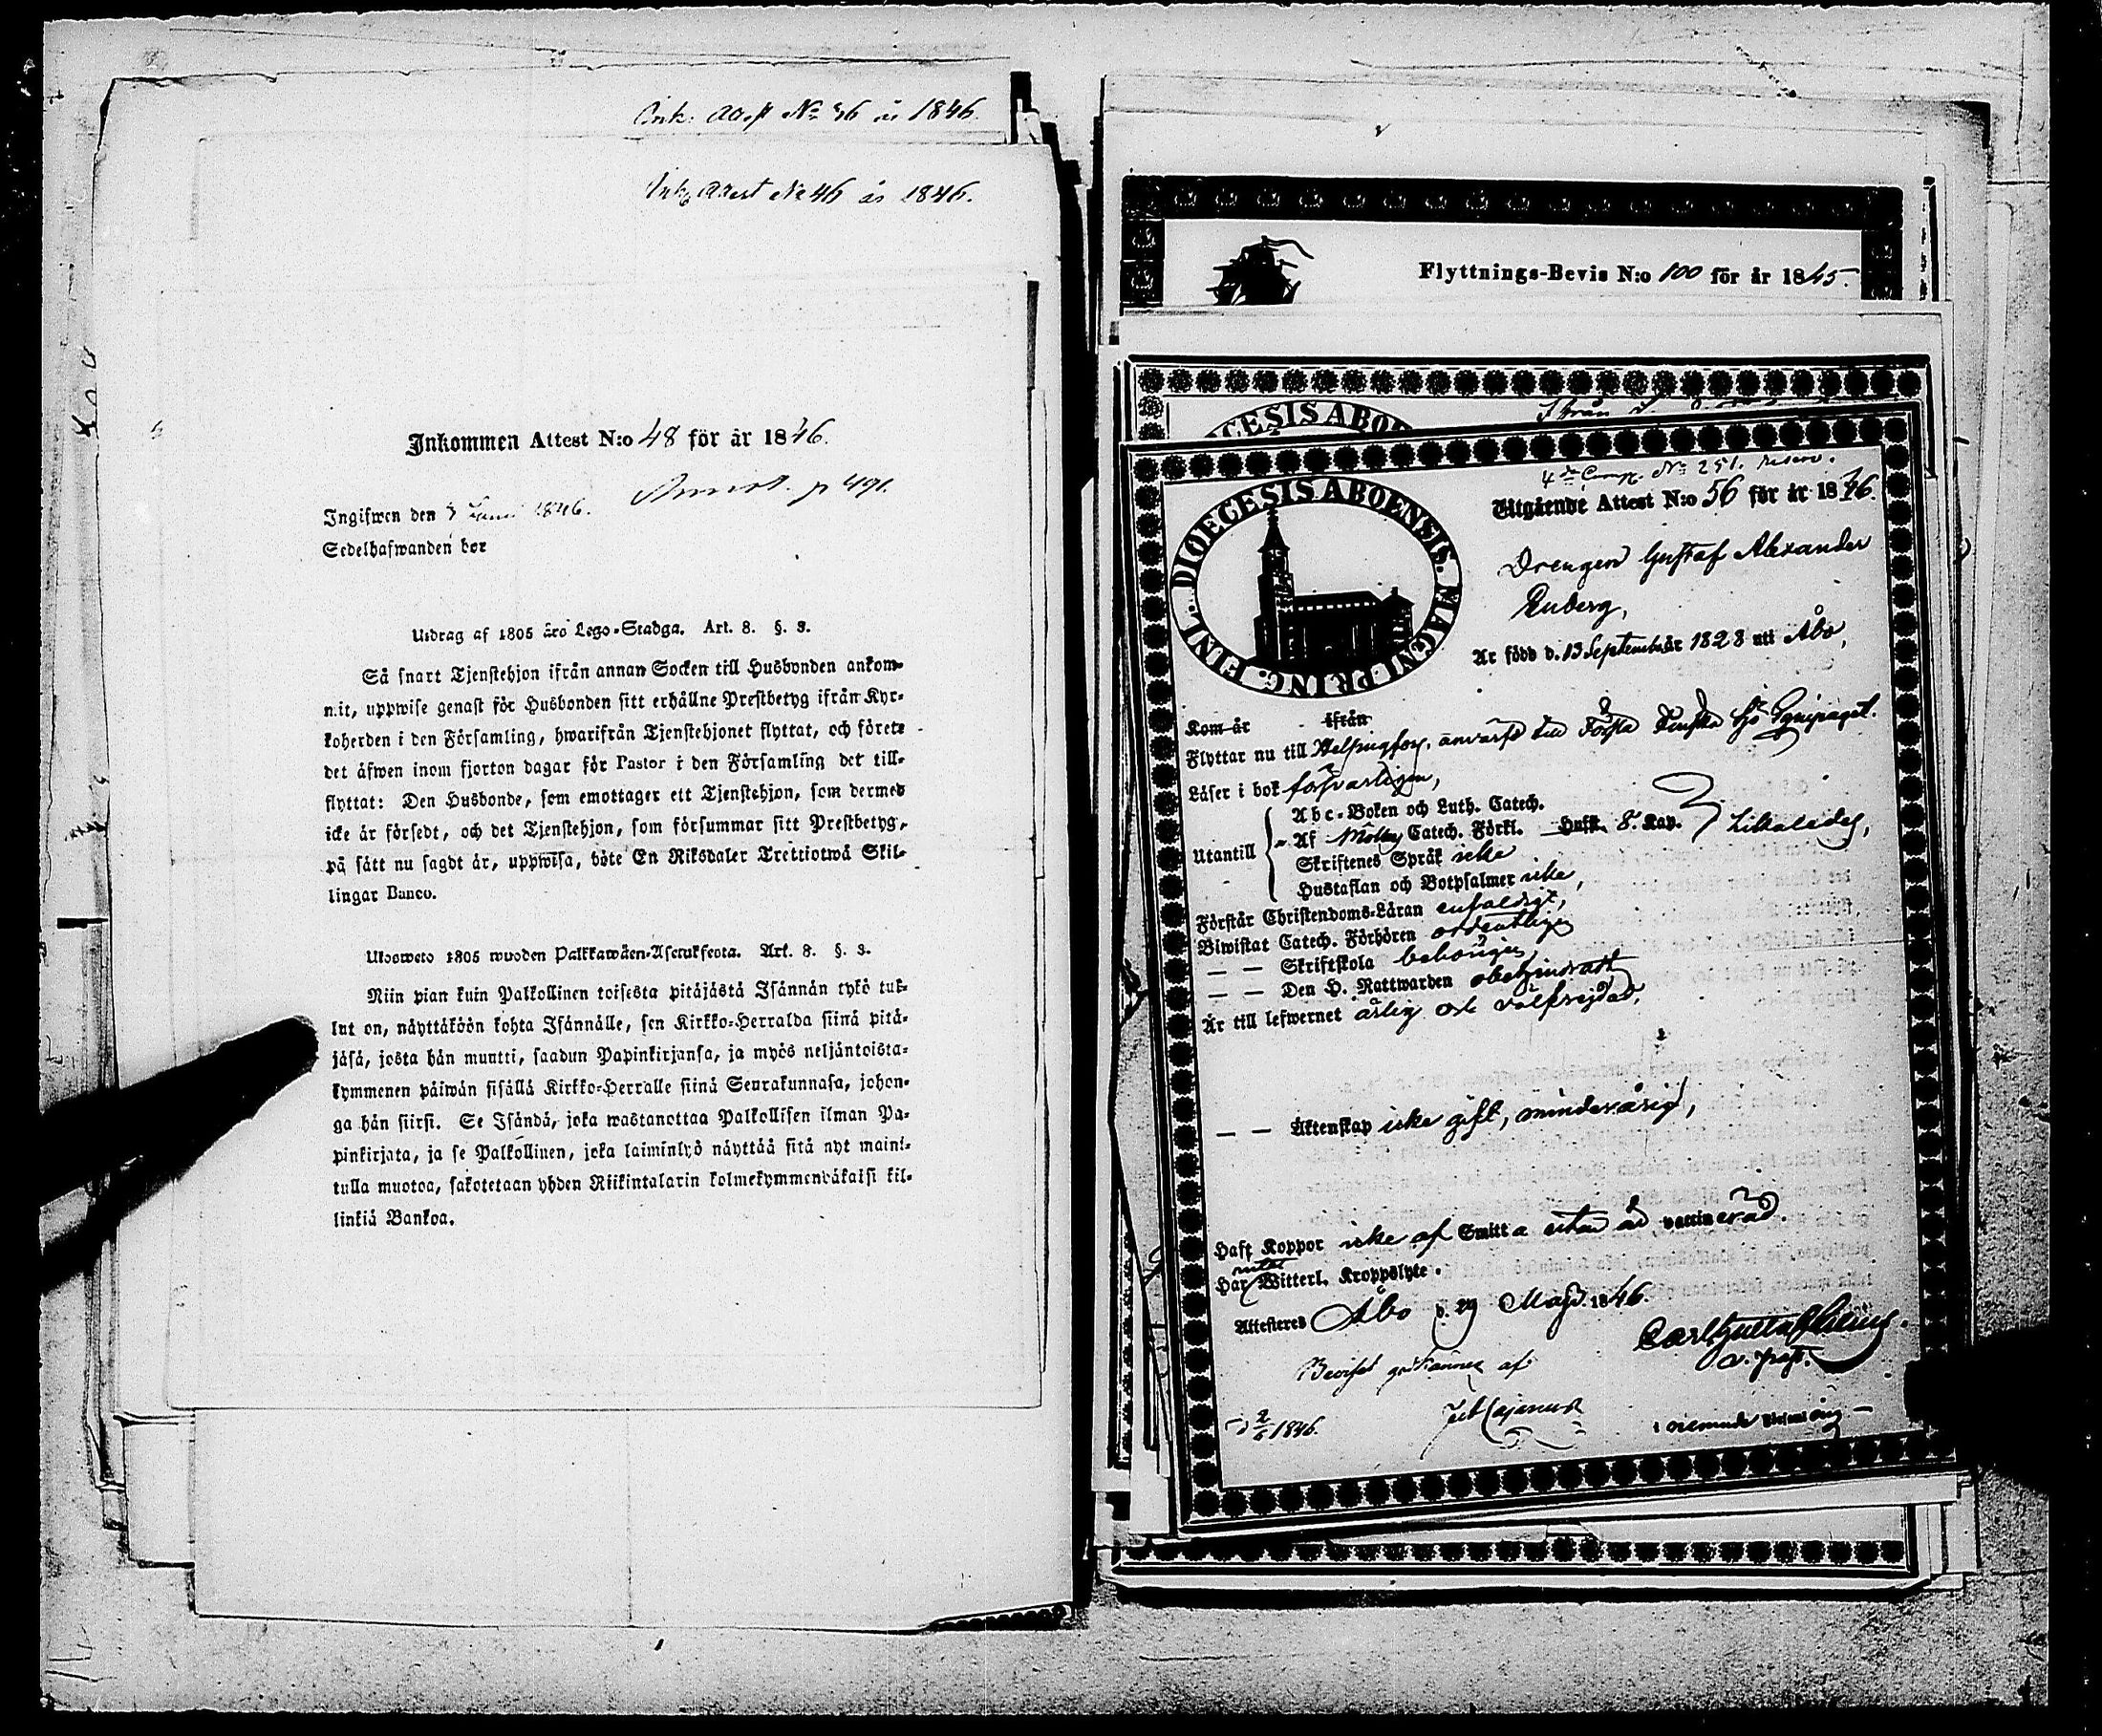 Ink. Att. No 36 år 1846.
Ink. Attest No 46 år 1846.
Inkommen Attest N:o 48 för år 1846.
p 491.
Ingifwen den Junii 1846.
Sedelhafwanden bor
Utdrag af 1805 års Lego-Stadga. Art. 8. §. 3.
Så snart Tjenstehjon ifrån annan Socken till Husbonden ankom-
mit, uppwise genast för Husbonden sitt erhållne Prestbetyg ifrån Kyr-
koherden i den Församling, hwarifrån Tjenstehjonet flyttat, och förete
det äfwen inom fjorton dagar för Pastor i den Församling det till-
flyttat: Den Husbonde, som emottager ett Tjenstehjon, som dermed
icke är försedt, och det Tjenstehjon, som försummar sitt Prestbetyg,
på sätt nu sagdt är, uppwisa, böte En Riksdaler Trettiotwå Skil-
lingar Banco.
Ulosweto 1805 wuoden Palkkawäen-Asetuksesta. Art. 8. §. 3.
Niin pian kuin Palkollinen toisesta pitäjästä Isännän tykö tul-
lut on, näyttäköön kohta Isännälle, sen Kirkko-Herralda siinä pitä-
jäsä, josta hän muutti, saadun Papinkirjansa, ja myös neljäntoista-
kymmenen päiwän sisällä Kirkko-Herralle siinä Seurakunnasa, johon-
ga hän siirsi. Se Isändä, joka wastanottaa Palkollisen ilman Pa-
pinkirjata, ja se Palkollinen, joka laiminlyö näyttää sitä nyt maini-
tulla muotoa, sakotetaan yhden Riikintalarin kolmekymmendäkaksi kil-
linkiä Bankoa.
Flyttnings-Bevis N:o 100 för år 1845.
4de Comp. No 251. reserv.
DIOECESIS ABOENSIS. MAGNI PRINC. FINL.
Utgående Attest N:o 56 för år 1846.
Drengen Gustaf Alexander
Enberg,
Är född d. 13 September år 1828 uti Åbo,
Kom år ifrån
Flyttar nu till Helsingfors, anvärfd till Första Finska Sjö Equipaget.
Läser i bok försvarligen,
Abc-Boken och Luth. Catech.
Utantill Af Möllers Catech. Förkl. Huft. 8. Kap. Likaledes,
Skriftenes Språk icke
Hustaflan och Botpsalmer icke,
Förstår Christendoms-Läran enfaldigt,
Biwistat Catech. Förhören ordentligen
— — Skriftskola behörigen,
— — Den H. Nattwarden obehindradt
Är till lefwernet ärlig och välfrejdad,
— — Äktenskap icke gift, minderårig,
Haft Koppor icke af Smitta utan är vaccinerad.
Har intet Witterl. Kroppslyte.
Attesteras Åbo d. 29 Maji 1846.
Carl Gustaf
v. past.
Beviset godkännes af
d 2/6 1846.